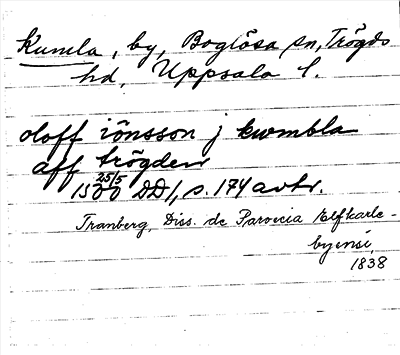 Kumla, by, Boglösa sn, Trögds
hd, Uppsala l.
oloff iönsson j kwmbla
aff trögden
1500 25/5 DD1, s. 174 avtr.
Tranberg, Diss. de Paroecia Elfkarle-
byensi,
1838